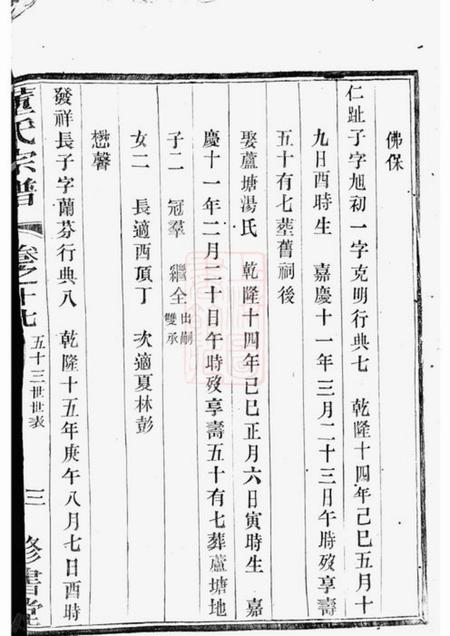 佛保
仁趾子字旭初一字克明行典七　乾隆十四年己巳五月十
九日酉時生　嘉慶十一年三月二十三日午時殁享壽
五十有七塟舊祠後
娶蘆塘湯氏　乾隆十四年己巳正月六日寅時生　嘉
慶十一年二月二十日午時殁享壽五十有七葬蘆塘地
子二　冠羣　繼全出嗣雙承
女二　長適西頂丁　次適夏林彭
懋馨
發祥長子字蘭芬行典八　乾隆十五年庚午八月七日酉時
董氏宗譜　卷之十七　五十三世世表　三　修書堂